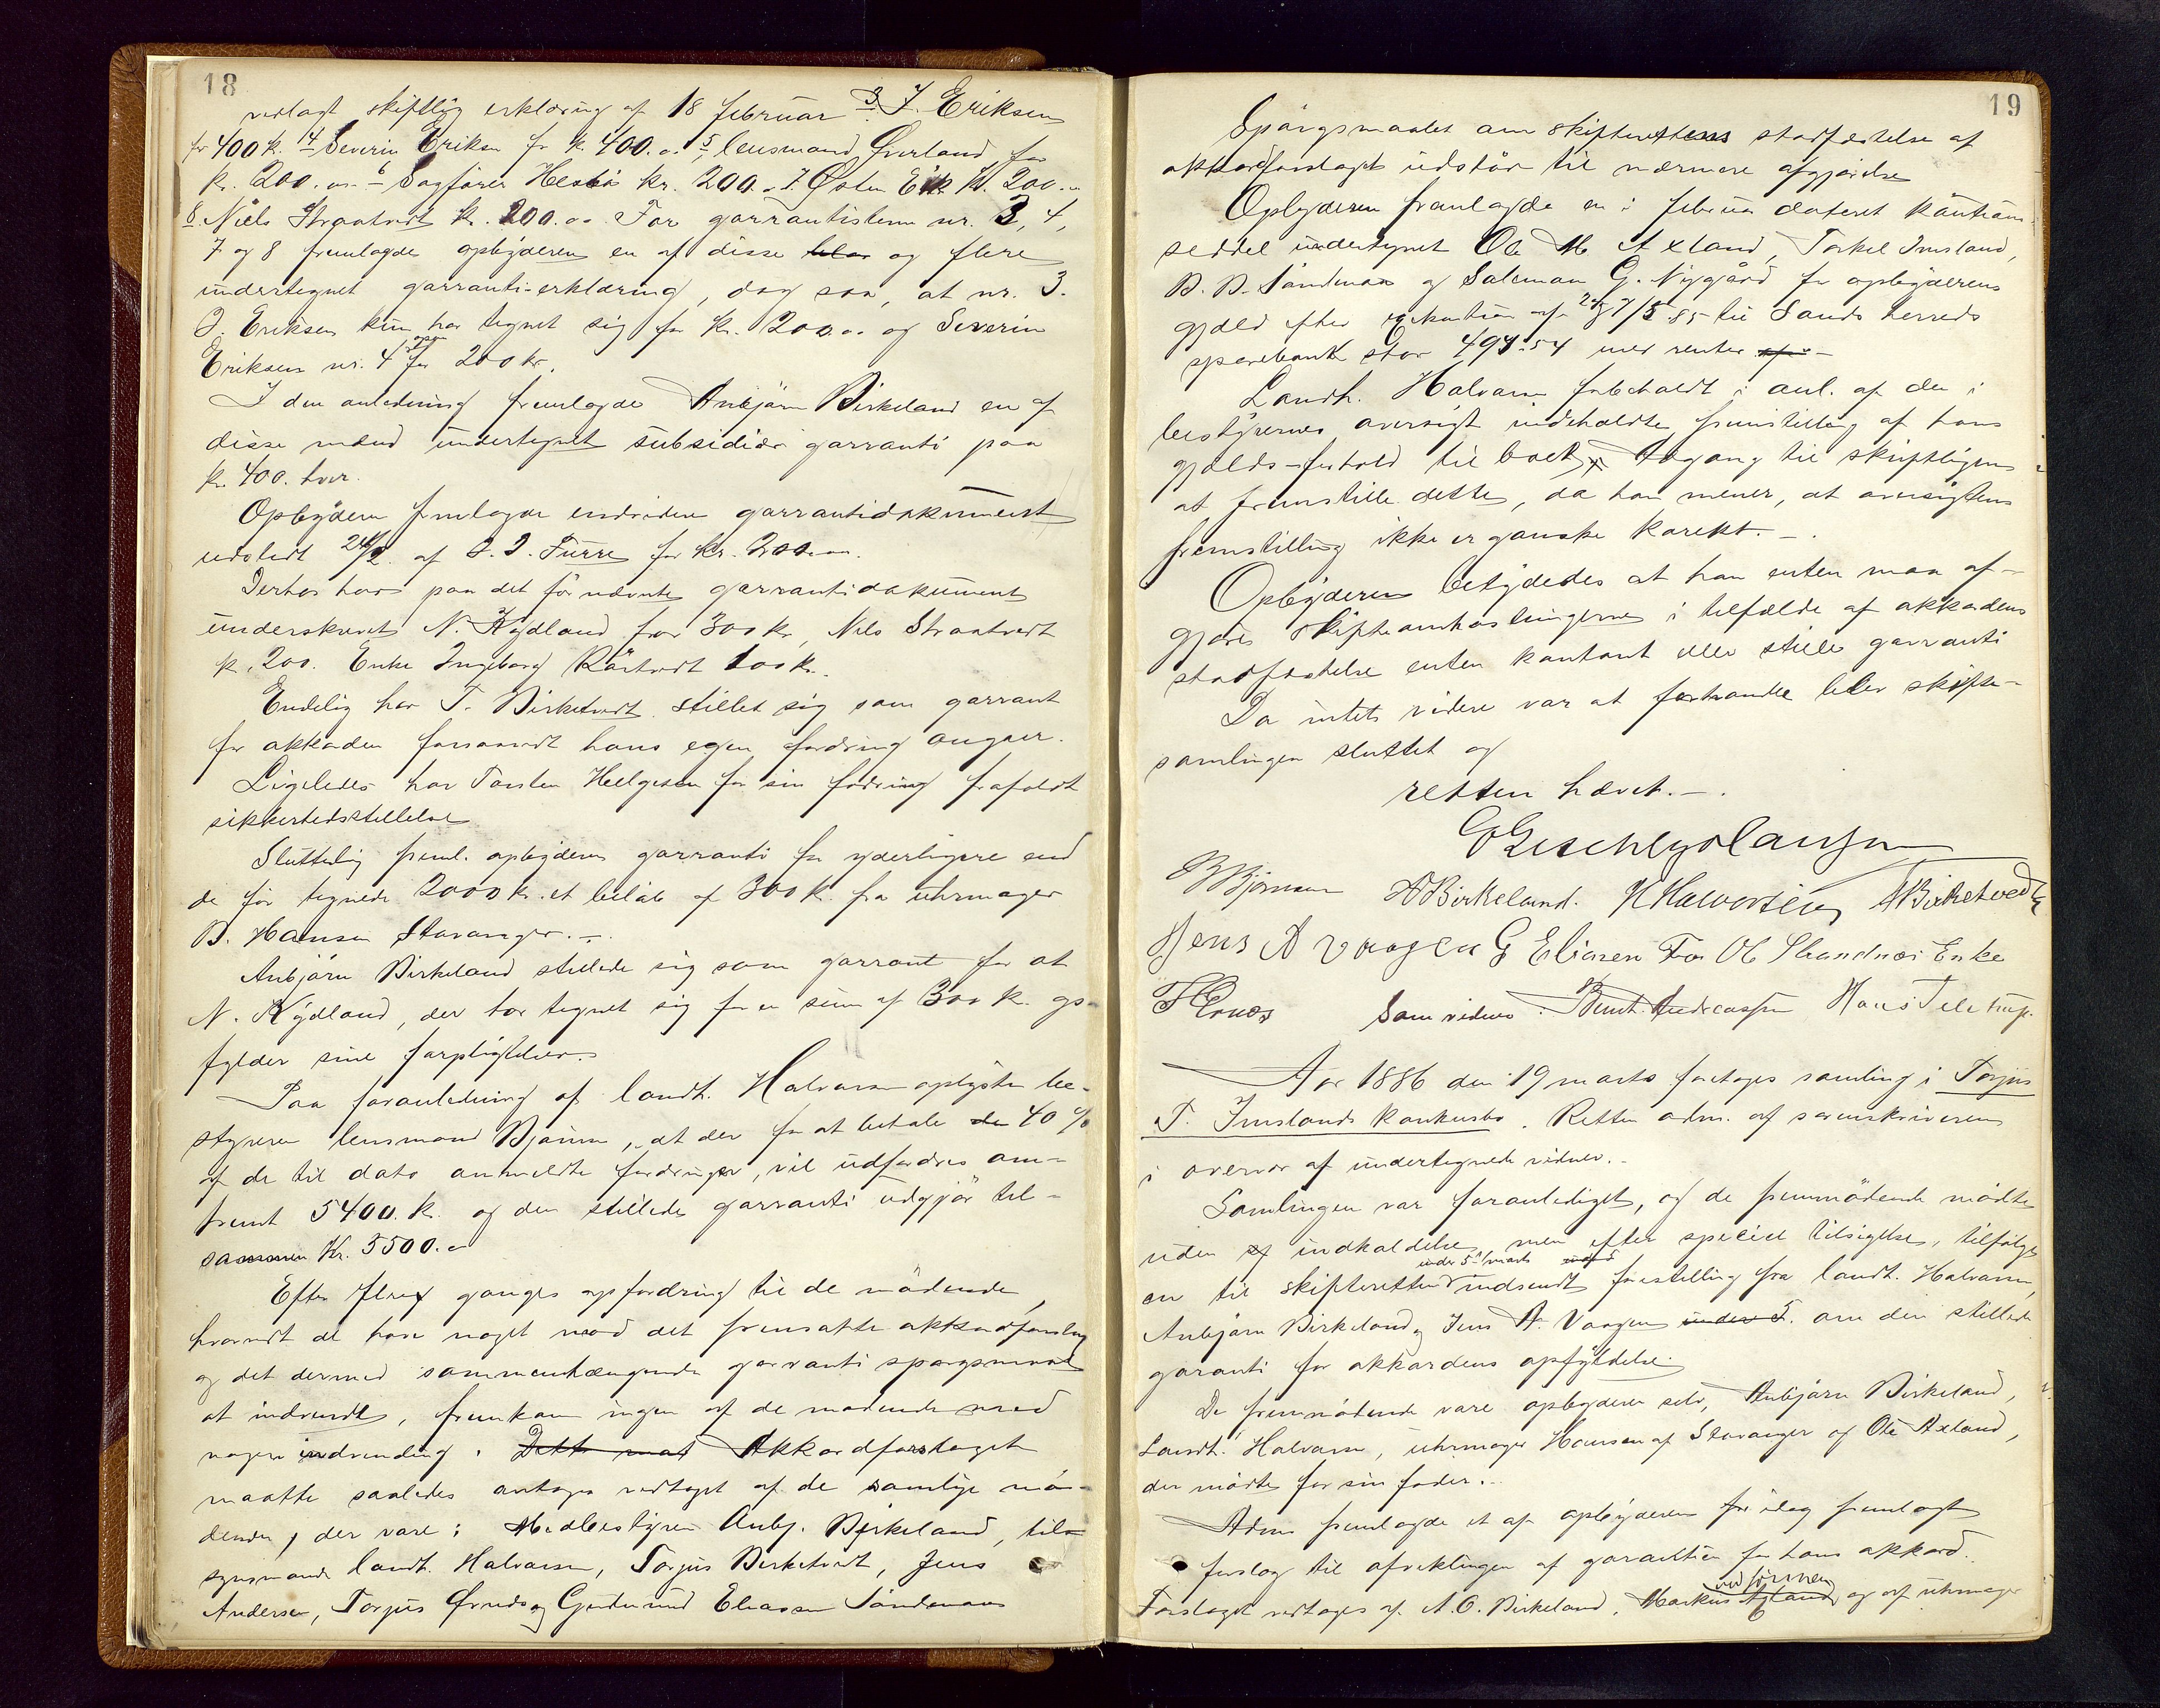 18
vedlagt skriftlig erklæring af 18 februar 3. J. Eriksen
for 400 k. 4 Severin Eriksen for k. 400.00 5 lensmand Øverland for
kr. 200.00. 6 Sagfører Hesbø kr. 200.- 7. Østen Eik kr. 200.-
8. Niels Straatvedt kr. 200.00. For garrantisterne nr. 3, 4,
7 og 8 fremlagde opbyderen en af disse og flere
undertegnet garranti-erklæring, dog saa, at nr. 3.
J. Eriksen kun har tegnet sig for kr. 200.00 og Severin
Eriksen nr. 4 for 200 kr.
I den anledning fremlagde Anbjørn Birkeland en af
disse mænd undertegnet subsidiær garranti paa
kr. 400. hver.
Opbyderen fremlagde endvidere garrantidokument
udstedt 24/2. af J. J. Furre for kr. 200.00.
Derhos har paa det før nævnte garrantidokument
underskrevet N. Kydland for 300 kr, Nils Straatvedt
kr. 200. Enke Ingeborg 100 kr.
Endelig har T. Birketvedt stillet sig som garrant
for akkorden forsaavidt hans egen fordring angaar.
Ligeledes har Torsten Helgesen for sin fordring frafaldt
sikkerhedsstillelse
Sluttelig freml. opbyderen garranti for yderligere end
de før tegnede 2000 kr. et beløb af 300 k. fra uhrmager
B. Hansen Stavanger. -
Anbjørn Birkeland stillede sig som garrant for at
N. Kydland, der har tegnet sig for en sum af 300 k. op-
fylder sine forpligtelser.
Paa foranledning af landh. Halvorsen oplyste be-
styreren lensmand Bjørnsen, at der for at betale den 40 %
af de til dato anmeldte fordringer, vil udfordres om-
trent 5400. k. og den stillede garranti udgjør til-
sammen Kr. 5500.00
Efter flere ganges opfordring til de mødende,
hvorvidt de have noget mod det fremsatte akkordforslag
og det dermed sammenhængende garranti spørgsmaal
at indvende, fremkom ingen af de mødende med
nogen indvending. Dette maa Akkordforslaget
maatte saaledes antages vedtaget af de samtlige mø-
dende, der vare: Medbestyrer Anbj. Birkeland, til-
synsmand landh. Halvorsen, Torjus Birketvedt, Jens
Andersen, Torjus Ørnes og Gudmund Eliassen Sandenaas
19
Spørgsmaalet om skifterettens stadfæstelse af
akkordforslaget udstaar til nærmere afgjørelse
Opbyderen fremlagde en i februar dateret kautions-
seddel undertegnet Ole M Axland, Torkel Imsland,
B. B. Sandenaas og Saleman G. Nygaard for opbyderens
gjæld efter exekution af 2 og 7/5 85 til Sands herreds
sparebank stor 494.54 med renter
Landh. Halvorsen forbeholdt i anl. af den i
bestyrernes oversigt indeholdte fremstilling af hans
gjælds-forhold til boet, adgang til skriftligen
at fremstille dette, da han mener, at oversigtens
fremstilling ikke er ganske korekt. -.
Opbyderen betydedes at han enten maa af-
gjøre skifteomkostningerne i tilfælde af akkordens
stadfæstelse enten kontant eller stille garranti
Da intet videre var at forhandle blev skifte-
samlingen sluttet og
retten hævet. -.
BBjørnsen ABirkeland. H Halvorsen ABirketvedt
Jens A Vaagen G Eliasen For Ol Strandnæs Enke
Som vidner Bernt Andreassen Hans Teletrup.
Aar 1886 den 19 marts foretoges samling i Torjus
T. Imslands konkursbo. Retten adm. af sorenskriveren
i overvær af undertegnede vidner. -
Samlingen var foranlediget, og de fremmødende mødte
uden indkaldelse, men efter speciel tilsigelse, tilfølge
under 5te marts
en til skifteretten indsendt forestilling fra landh. Halvorsen,
Anbjørn Birkeland og Jens A. Vaagen under 5. om den stillede
garanti for akkordens opfyldelse.
De fremmødende vare opbyderen selv, Anbjørn Birkeland,
Landh. Halvorsen, uhrmager Hansen af Stavanger og Ole Axland,
der mødte for sin fader. -
Adm. fremlagde et af opbyderen for idag fremlagt
forslag til afviklingen af garantien for hans akkord.
ved sønnen
Forslaget vedtoges af A. O. Birkeland, Markus Axland og af uhrmager